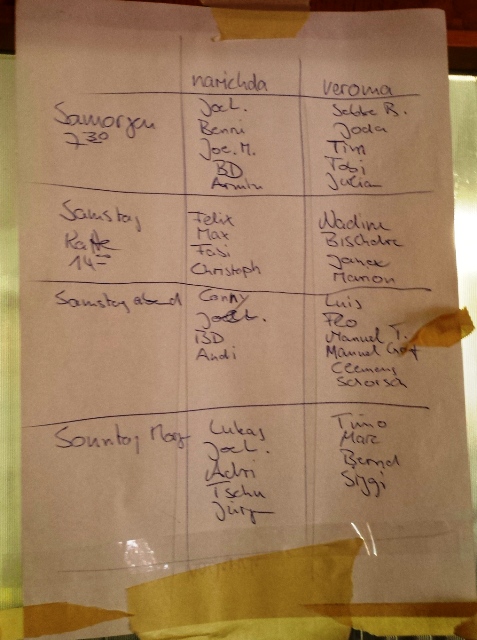 narichda veroma
Samorgen
7 30
Joel.
Benni
Joe.M.
BD
Armin
Sebbe R.
Joda
Tim
Tobi
Julian
Samstag
Kaffe
14
Felix
Max
Fabi
Christoph
Nadine
Janek
Manon
Samstag abend
Conny
BD
Andi
Luis
Flo
Manuel T.
Manuel
Clemens
Schorsch
Sonntag Morg
Lukas
Joel.
Adri
Tschu
Jürg
Timo
Marc
Bernd
Siggi